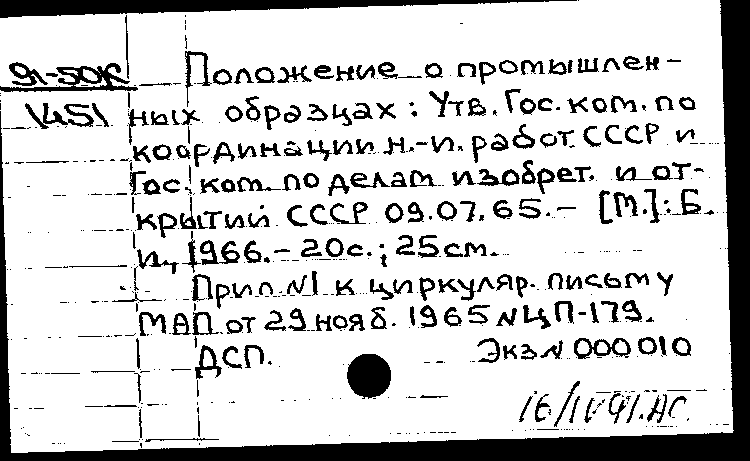 91-50К Положение о промышлен-
1451 ных образцах: Утв. Гос. ком. по
координации н.-и. работ СССР и
Гос. ком. по делам изобрет. и от-
крытий СССР 09.07.65.- [М.]: Б.
и., 1966.- 20с.; 25см.
Прил N1 к циркуляр. письму
МАП от 29 нояб. 1965 N ЦП-179.
ДСП. Экз N 000010
16/IV 91. АС